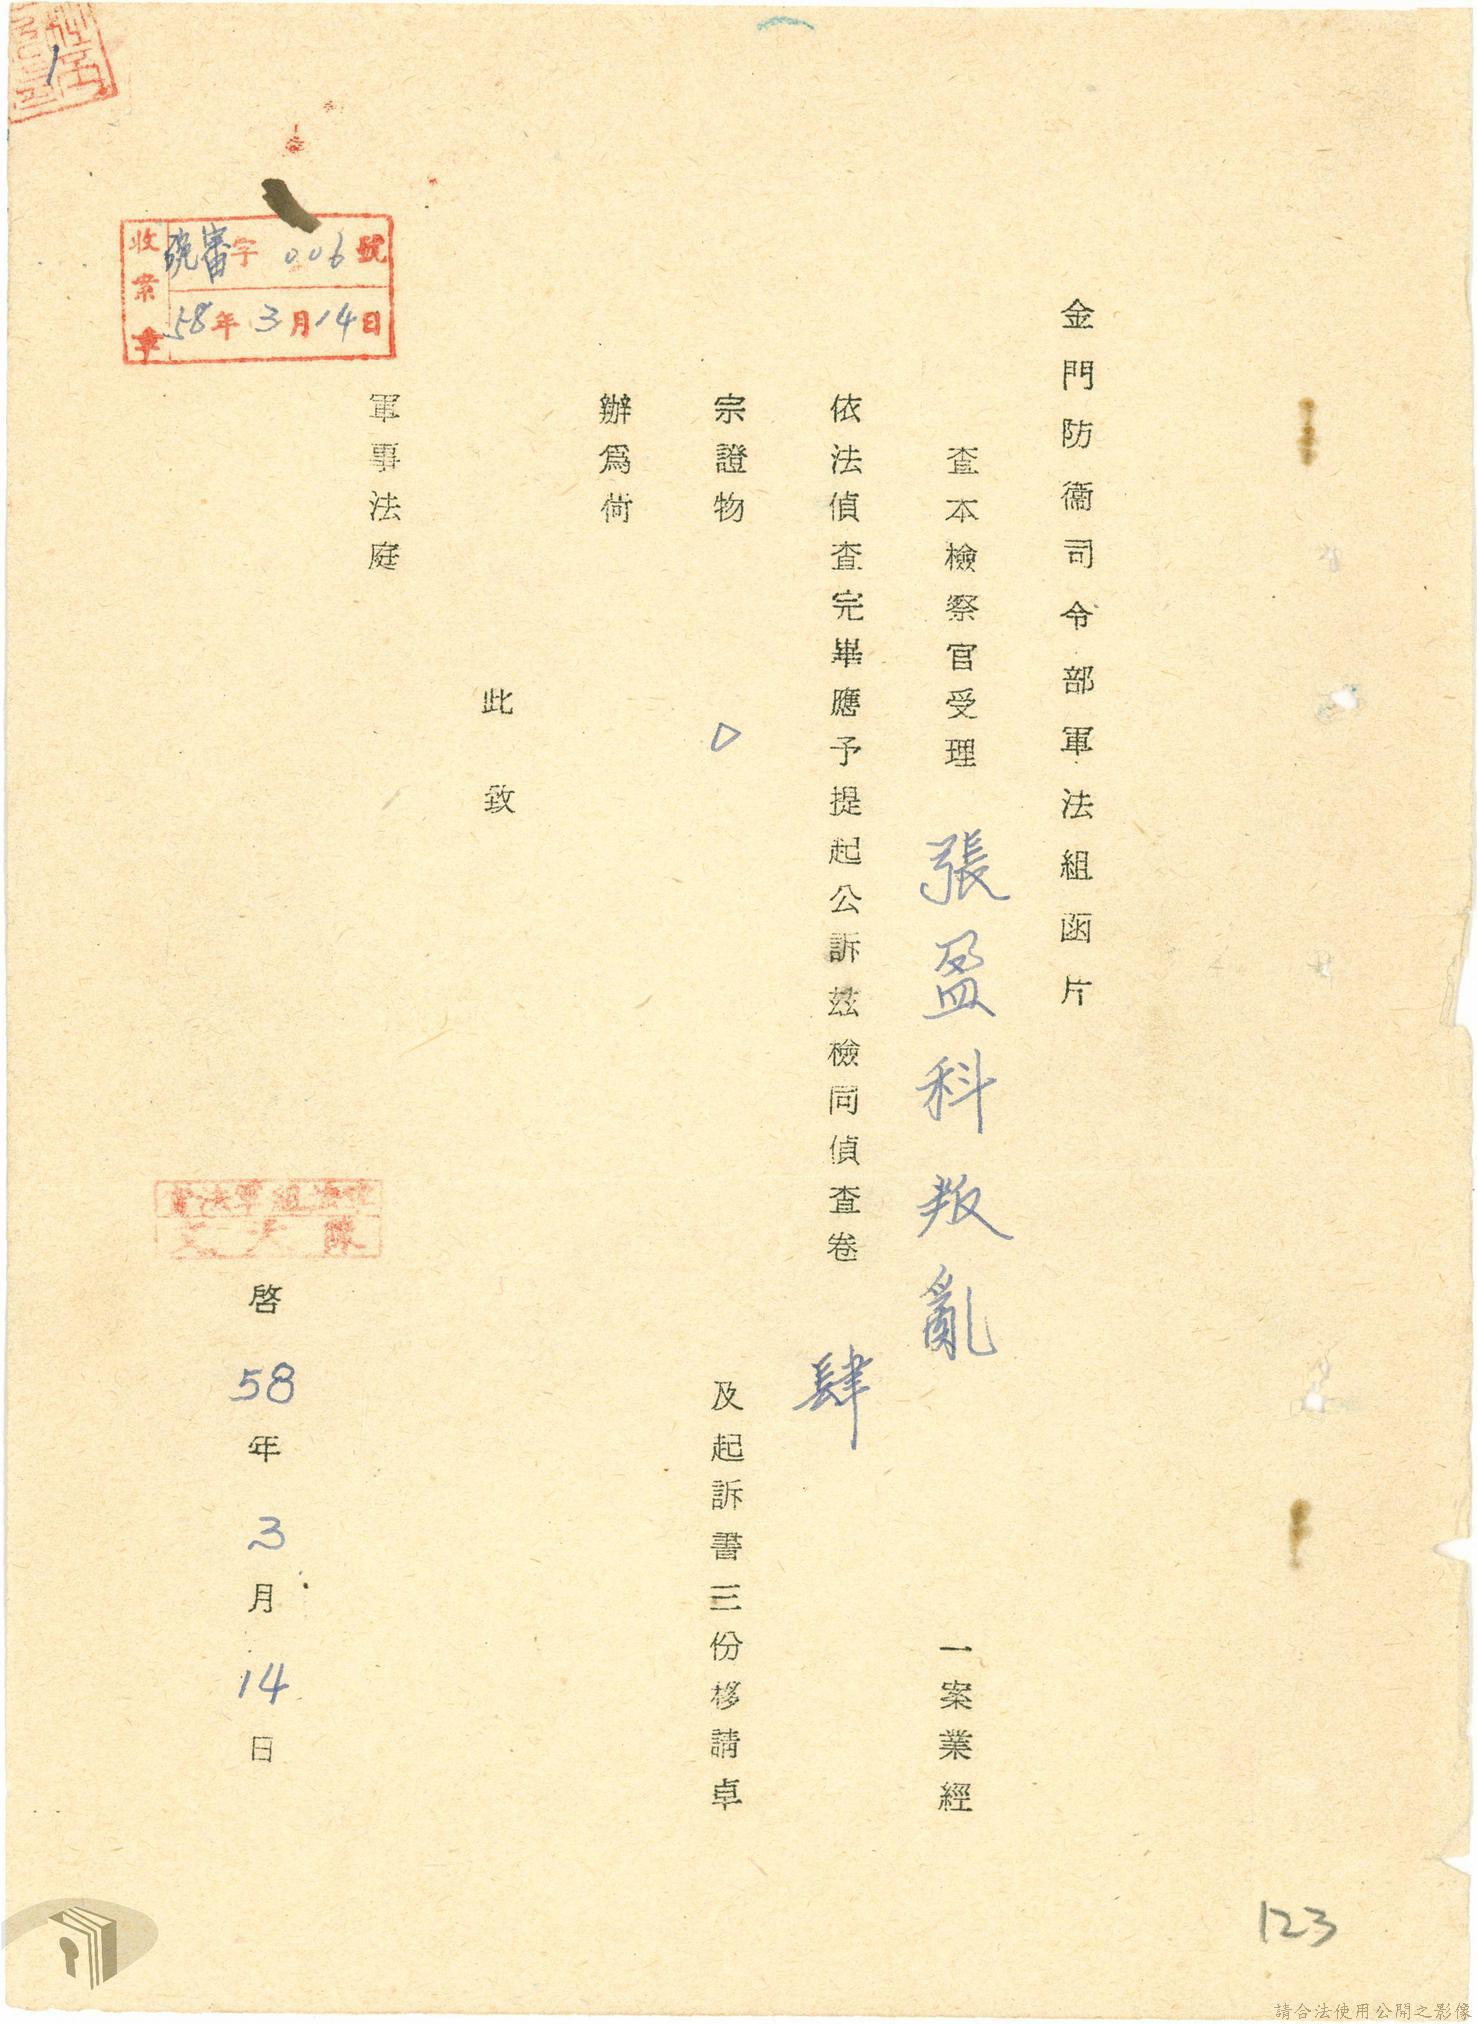 金門防衞司令部軍法組函片
查本檢察官受理 張盈科叛亂 一案業經
依法偵查完畢應予提起公訴茲檢同偵查卷 肆
宗證物 及起訴書三份移請卓
辦爲荷
此致
軍事法庭
啓 58年3月14日
收案章
審字 006號
58年3月14日
1
123
請合法使用公開之影像